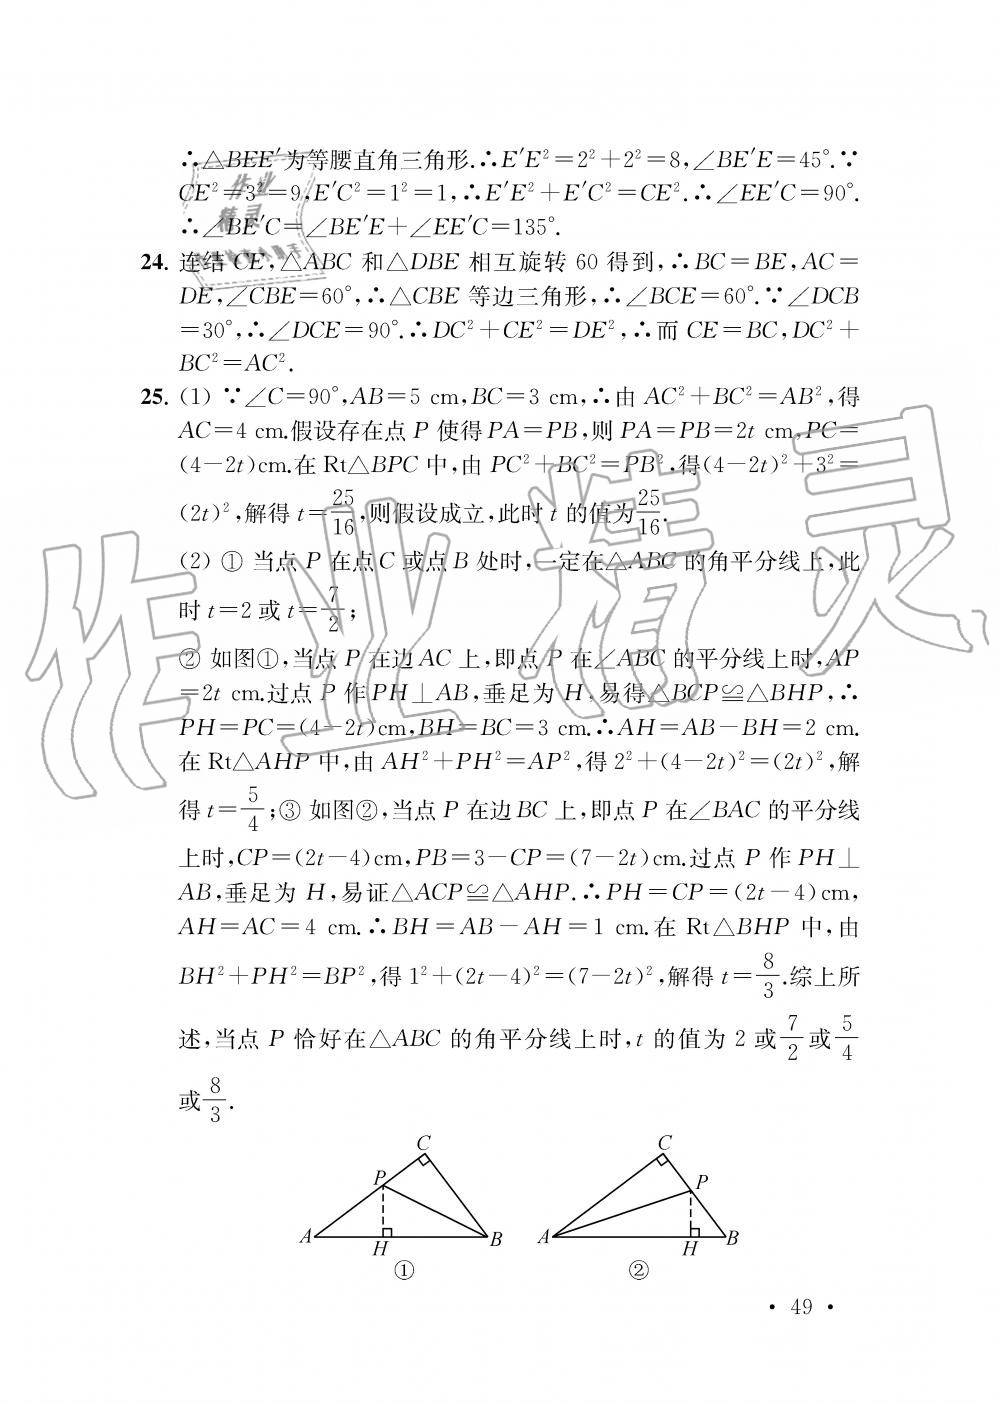 ∴△BEE′为等腰直角三角形.∴E′E²=2²+2²=8,∠BE′E=45°.∵
CE²=3²=9,E′C²=1²=1,∴E′E²+E′C²=CE².∴∠EE′C=90°.
∴∠BE′C=∠BE′E+∠EE′C=135°.
24. 连结CE,△ABC 和△DBE 相互旋转 60 得到,∴BC=BE,AC=
DE,∠CBE=60°,∴△CBE 等边三角形,∴∠BCE=60°.∵∠DCB
=30°,∴∠DCE=90°.∴DC²+CE²=DE²,∴而 CE=BC,DC²+
BC²=AC².
25. (1) ∵∠C=90°,AB=5 cm,BC=3 cm,∴由 AC²+BC²=AB²,得
AC=4 cm.假设存在点 P 使得PA=PB,则 PA=PB=2t cm,PC=
(4-2t)cm.在Rt△BPC 中,由 PC²+BC²=PB²,得(4-2t)²+3²=
(2t)²,解得 t=25/16,则假设成立,此时 t 的值为25/16.
(2) ① 当点 P 在点C 或点B 处时,一定在△ABC 的角平分线上,此
时 t=2 或 t=7/2;
② 如图①,当点 P 在边AC 上,即点 P 在∠ABC 的平分线上时,AP
=2t cm.过点 P 作PH⊥AB,垂足为 H,易得△BCP≌△BHP,∴
PH=PC=(4-2t)cm,BH=BC=3 cm.∴AH=AB-BH=2 cm.
在Rt△AHP 中,由 AH²+PH²=AP²,得 2²+(4-2t)²=(2t)²,解
得 t=5/4;③ 如图②,当点 P 在边BC 上,即点 P 在∠BAC 的平分线
上时,CP=(2t-4)cm,PB=3-CP=(7-2t)cm.过点 P 作 PH⊥
AB,垂足为 H,易证△ACP≌△AHP.∴PH=CP=(2t-4)cm,
AH=AC=4 cm.∴BH=AB-AH=1 cm.在 Rt△BHP 中,由
BH²+PH²=BP²,得 1²+(2t-4)²=(7-2t)²,解得 t=8/3.综上所
述,当点 P 恰好在△ABC 的角平分线上时,t 的值为 2 或7/2或5/4
或8/3.
C
P
A
H
B
①
C
P
A
H
B
②
• 49 •
作业精灵
作业
精灵